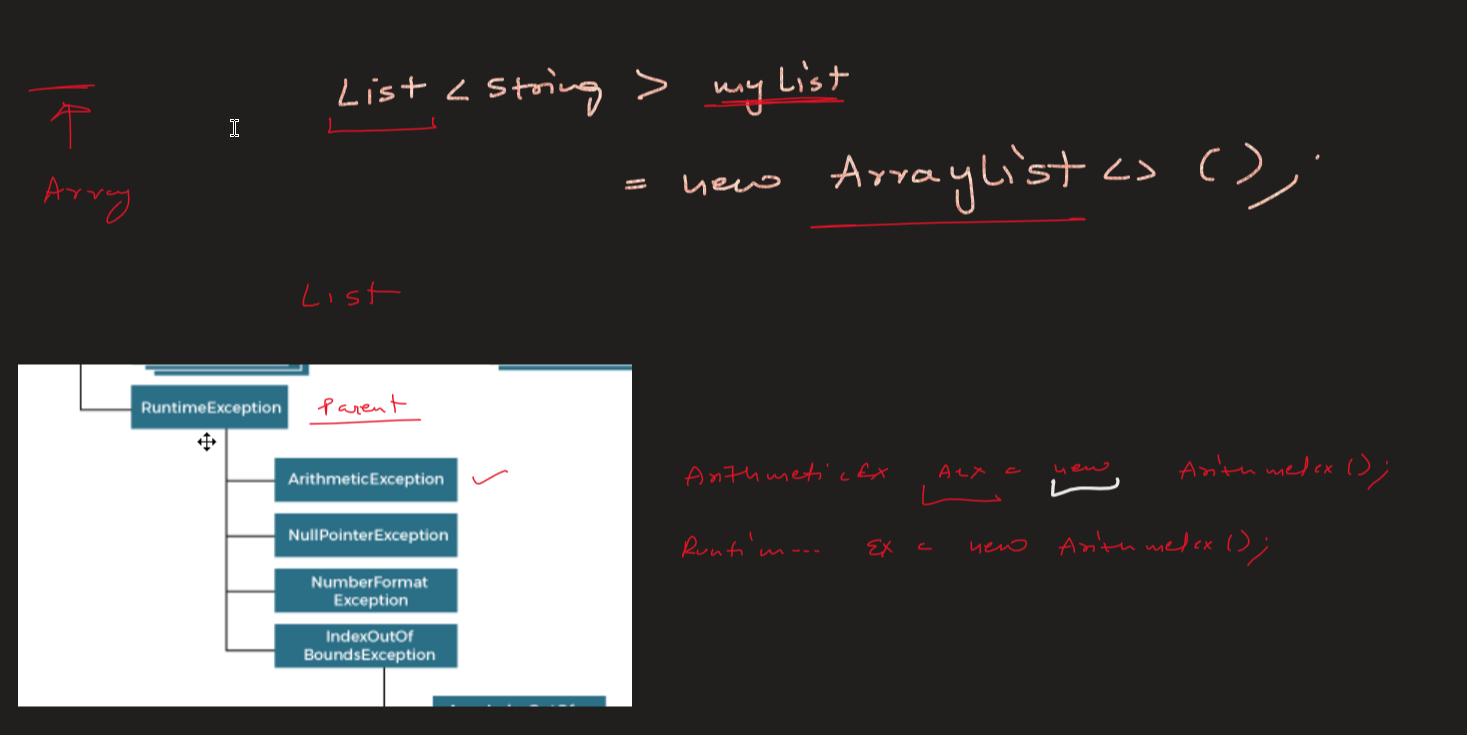 List < String > myList
= new ArrayList <> ();
Array
List
RuntimeException
Parent
ArithmeticException
NullPointerException
NumberFormat
Exception
IndexOutOf
BoundsException
ArithmeticEx AEx = new Arithmeticex ();
Runtim--- Ex = new Arithmeticex ();